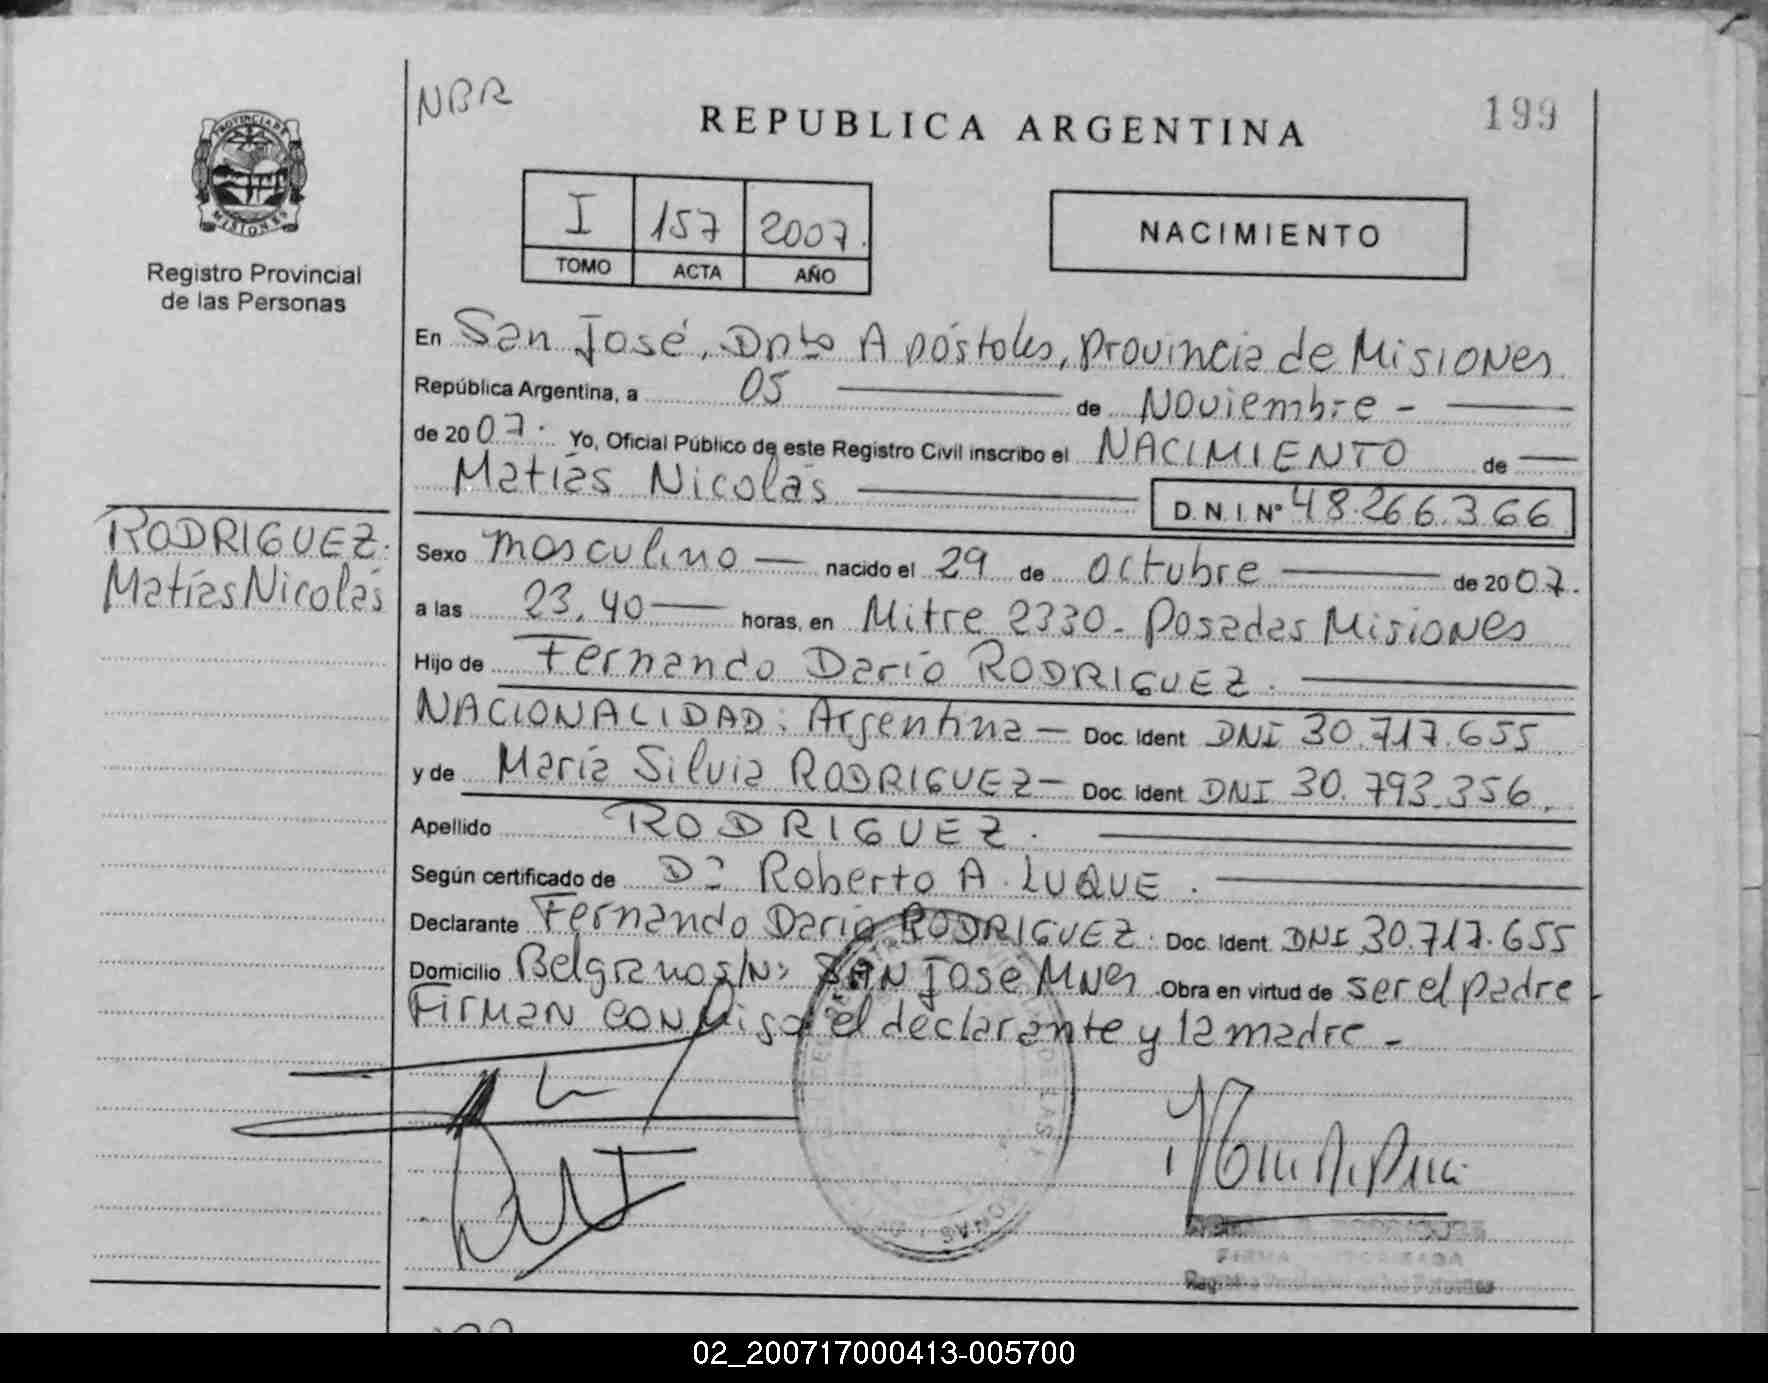 NBR
REPUBLICA ARGENTINA
199
PROVINCIA DE
MISIONES
Registro Provincial
de las Personas
I 157 2007.
TOMO ACTA AÑO
NACIMIENTO
En San José, Dpto Apóstoles, Provincia de Misiones
República Argentina, a 05 de Noviembre -
de 2007. Yo, Oficial Público de este Registro Civil inscribo el NACIMIENTO de
Matías Nicolás
D.N.I. Nº 48.266.366
RODRIGUEZ.
Matías Nicolás
Sexo masculino nacido el 29 de octubre de 2007.
a las 23,40 horas, en Mitre 2330 - Posadas Misiones
Hijo de Fernando Darío RODRIGUEZ.
NACIONALIDAD: Argentina - Doc. Ident DNI 30.717.655
y de María Silvia RODRIGUEZ - Doc. Ident DNI 30.793.356.
Apellido RODRIGUEZ.
Según certificado de Dr Roberto A. LUQUE.
Declarante Fernando Darío RODRIGUEZ. Doc. Ident DNI 30.717.655
Domicilio Belgrano s/Nº SAN José Mnes Obra en virtud de ser el padre
Firman conmigo el declarante y la madre -
FIRMA
02_200717000413-005700